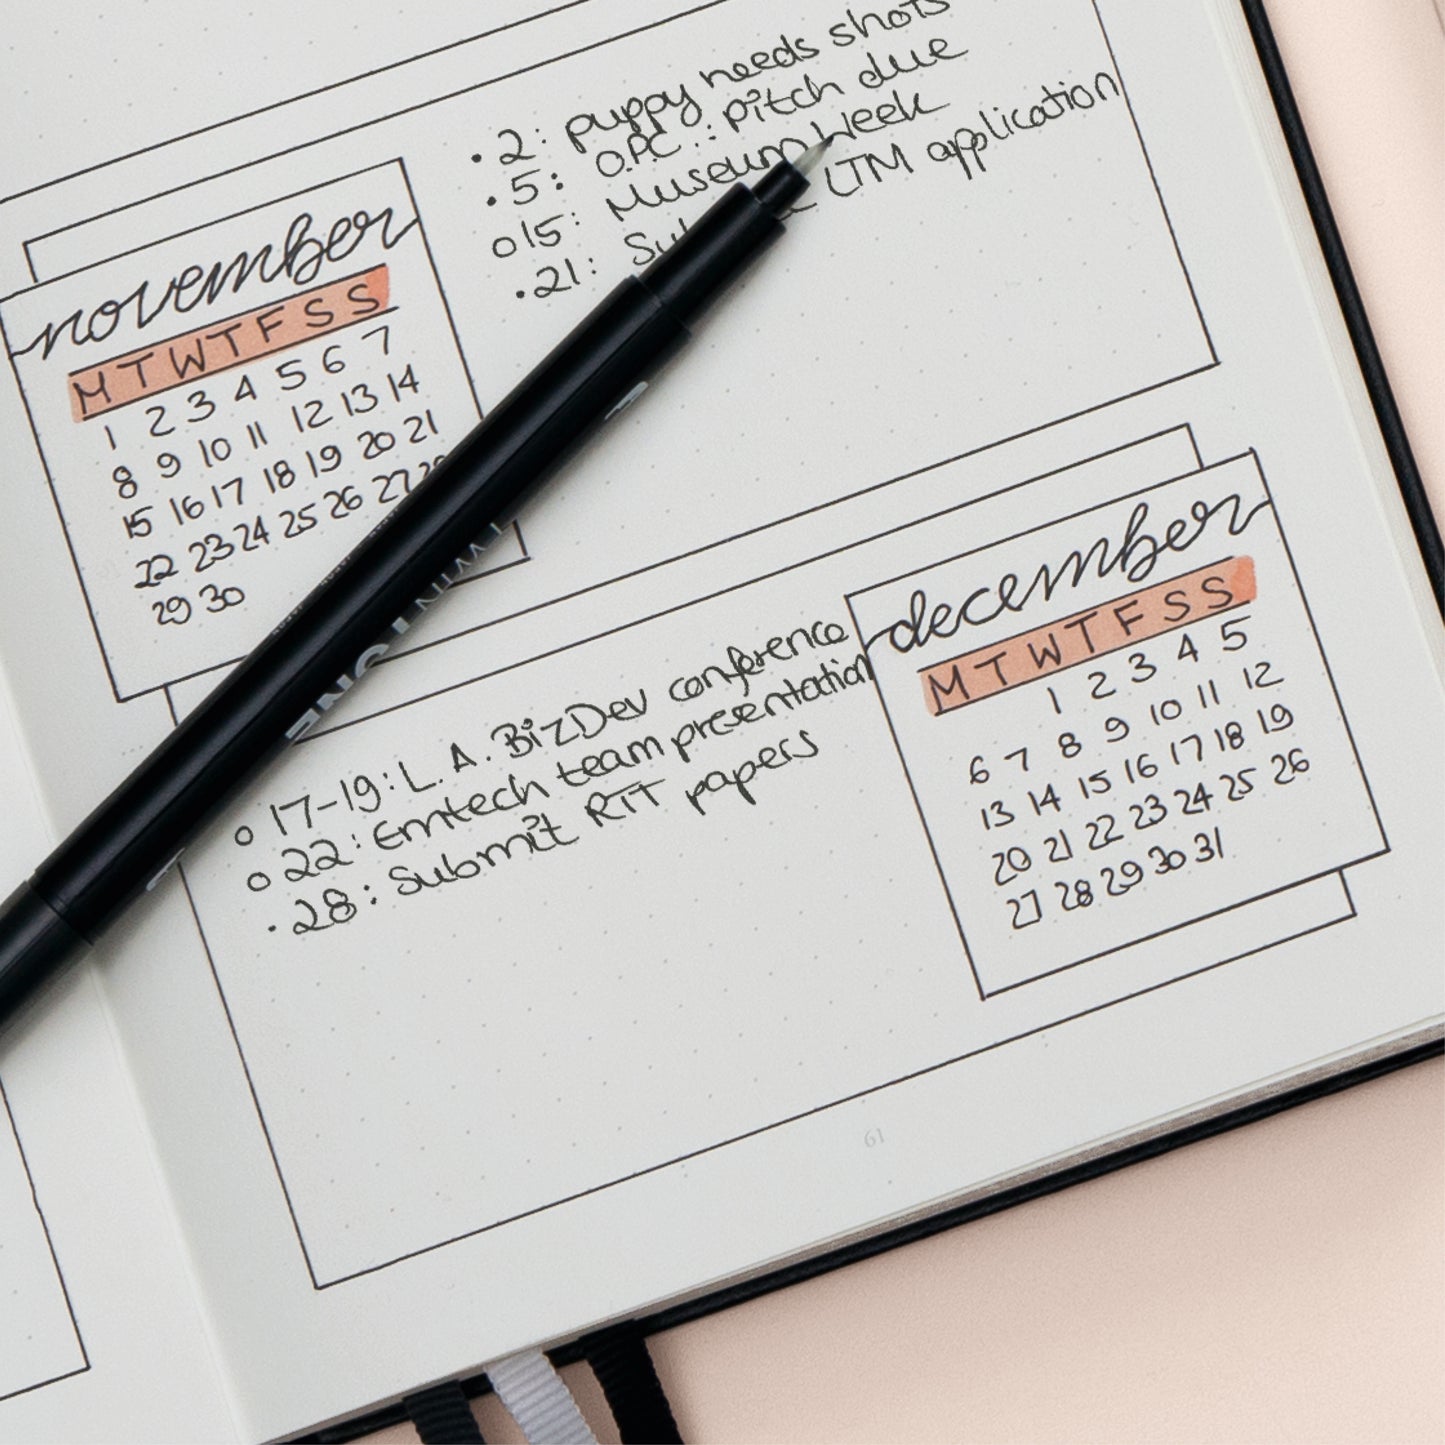 november
M T W T F S S
1 2 3 4 5 6 7
8 9 10 11 12 13 14
15 16 17 18 19 20 21
22 23 24 25 26 27
29 30
• 2: puppy needs shots
• 5: O.P.C.: pitch due
o 15: Museum Week
• 21: LTM application
TWIN
december
M T W T F S S
1 2 3 4 5
6 7 8 9 10 11 12
13 14 15 16 17 18 19
20 21 22 23 24 25 26
27 28 29 30 31
o 17-19: L.A. BizDev conference
o 22: Emtech team presentation
• 28: Submit RIT papers
61